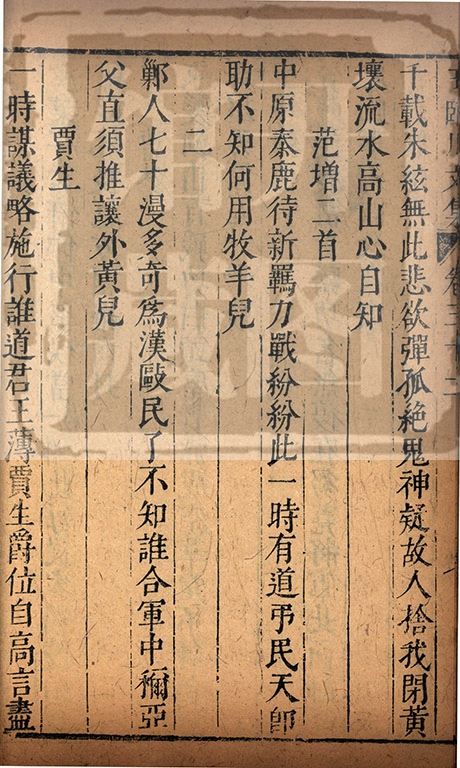 王臨川文集 卷三十二
千載朱絃無此悲欲彈孤絶鬼神疑故人捨我閉黃
壤流水高山心自知
范增二首
中原秦鹿待新羈力戰紛紛此一時有道弔民天即
助不知何用牧羊兒
二
鄛人七十漫多奇爲漢敺民了不知誰合軍中稱亞
父直須推讓外黃兒
賈生
一時謀議略施行誰道君王薄賈生爵位自高言盡